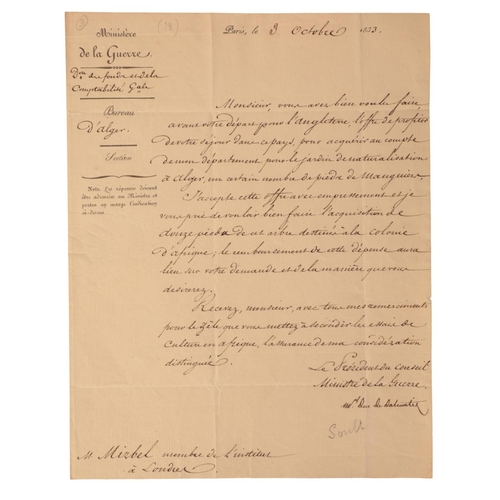 Ministère
de la Guerre.
Don des fonds et de la
Comptabilité Gale
Bureau
d'Alger.
Section
Nota. Les réponses doivent
être adressées au Ministre et
porter en marge l'indication
ci-dessus.
Paris, le 3 Octobre 1833.
Monsieur, vous avez bien voulu faire
avant votre départ pour l'Angleterre, l'offre de profiter
de votre séjour dans ce pays, pour acquérir au compte
de mon département pour le jardin de naturalisation
à Alger, un certain nombre de pieds de Manguiers.
J'accepte cette offre avec empressement et je
vous prie de vouloir bien faire l'acquisition de
douze pieds de cet arbre destinés à la colonie
d'afrique; le remboursement de cette dépense aura
lieu sur votre demande et de la manière que vous
désirerez.
Recevez, monsieur, avec tous mes remerciments
pour le zèle que vous mettez à seconder les essais de
Culture en afrique, l'assurance de ma considération
distinguée.
Le Président du Conseil
Ministre de la Guerre.
Mal Duc de Dalmatie
Soult
M Mirbel membre de l'institut
à Londres